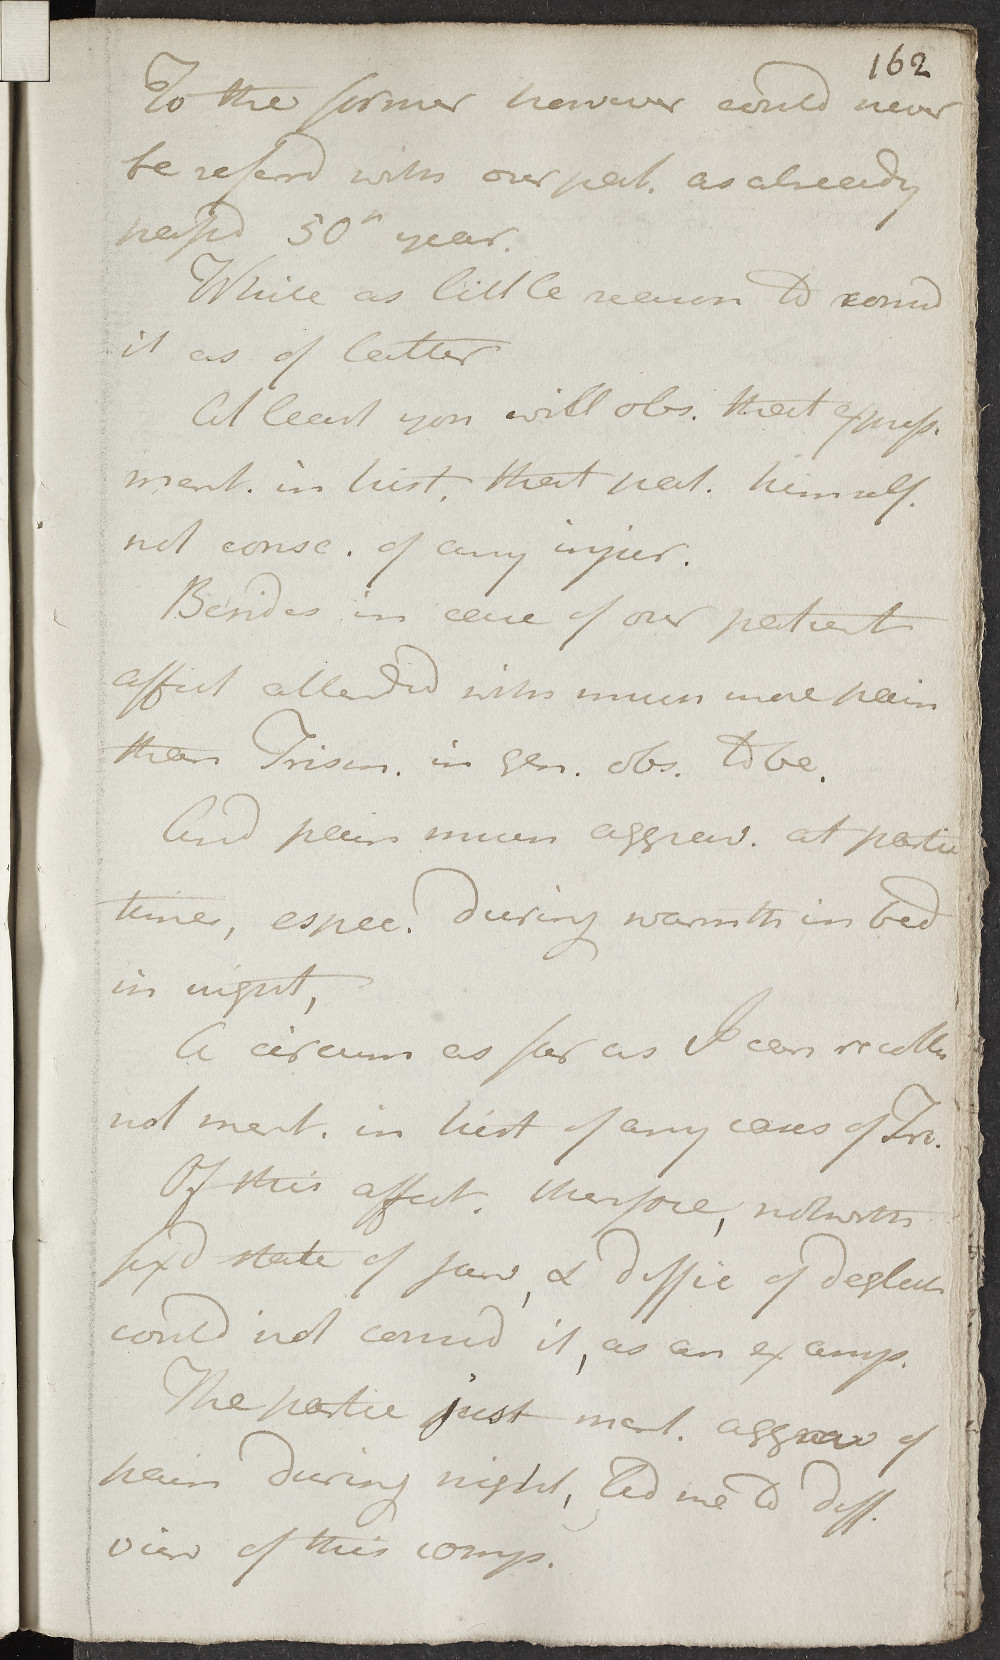 162
To the former however could never
be referd with our pat. as already
passd 50th year.
While as little reason to consid
it as of latter
At least you will obs. that express.
ment. in hist. that pat. himself.
not consc. of any injur.
Besides in case of our patient
affect attended with much more pain
than Trism. in gen. obs. to be.
And pain much aggrav. at partic
time, espec. during warmth in bed
in night,
A circum as far as I can recollec
not ment. in hist of any cases of Tris.
Of this affect. therefore, notwith
fixd state of jaw, & diffic of deglut
could not consid it, as an examp.
The partic just ment. aggrav of
pain during night, led me to diff.
view of this comp.